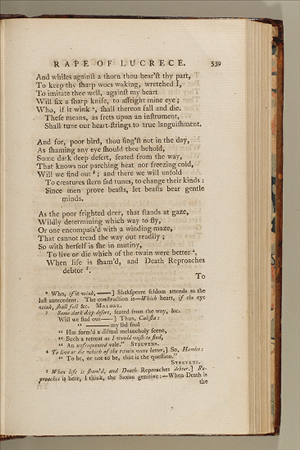 RAPE OF LUCRECE. 539
And whiles against a thorn thou bear'st thy part,
To keep thy sharp woes waking, wretched I,
To imitate thee well, against my heart
Will fix a sharp knife, to affright mine eye;
Who, if it wink ², shall thereon fall and die.
These means, as frets upon an instrument,
Shall tune our heart-strings to true languishment.
And for, poor bird, thou sing'st not in the day,
As shaming any eye should thee behold,
Some dark deep desert, seated from the way,
That knows nor parching heat nor freezing cold,
Will we find out ³; and there we will unfold
To creatures stern sad tunes, to change their kinds:
Since men prove beasts, let beasts bear gentle
minds.
As the poor frighted deer, that stands at gaze,
Wildly determining which way to fly,
Or one encompass'd with a winding maze,
That cannot tread the way out readily;
So with herself is she in mutiny,
To live or die which of the twain were better ⁴,
When life is sham'd, and Death Reproaches
debtor ⁵.
To
² Who, if it wink,—] Shakspeare seldom attends to the
last antecedent. The construction is—Which heart, if the eye
wink, shall fall &c. MALONE.
³ Some dark deep desert, seated from the way, &c.
Will we find out—] Thus, Calista:
"—— my sad soul
" Has form'd a dismal melancholy scene,
" Such a retreat as I would wish to find,
" An unfrequented vale." STEEVENS.
⁴ To live or die which of the twain were better,] So, Hamlet:
" To be, or not to be, that is the question."
STEEVENS.
⁵ When life is sham'd, and Death Reproaches debtor.] Re-
proaches is here, I think, the Saxon genitive:—When Death is
the